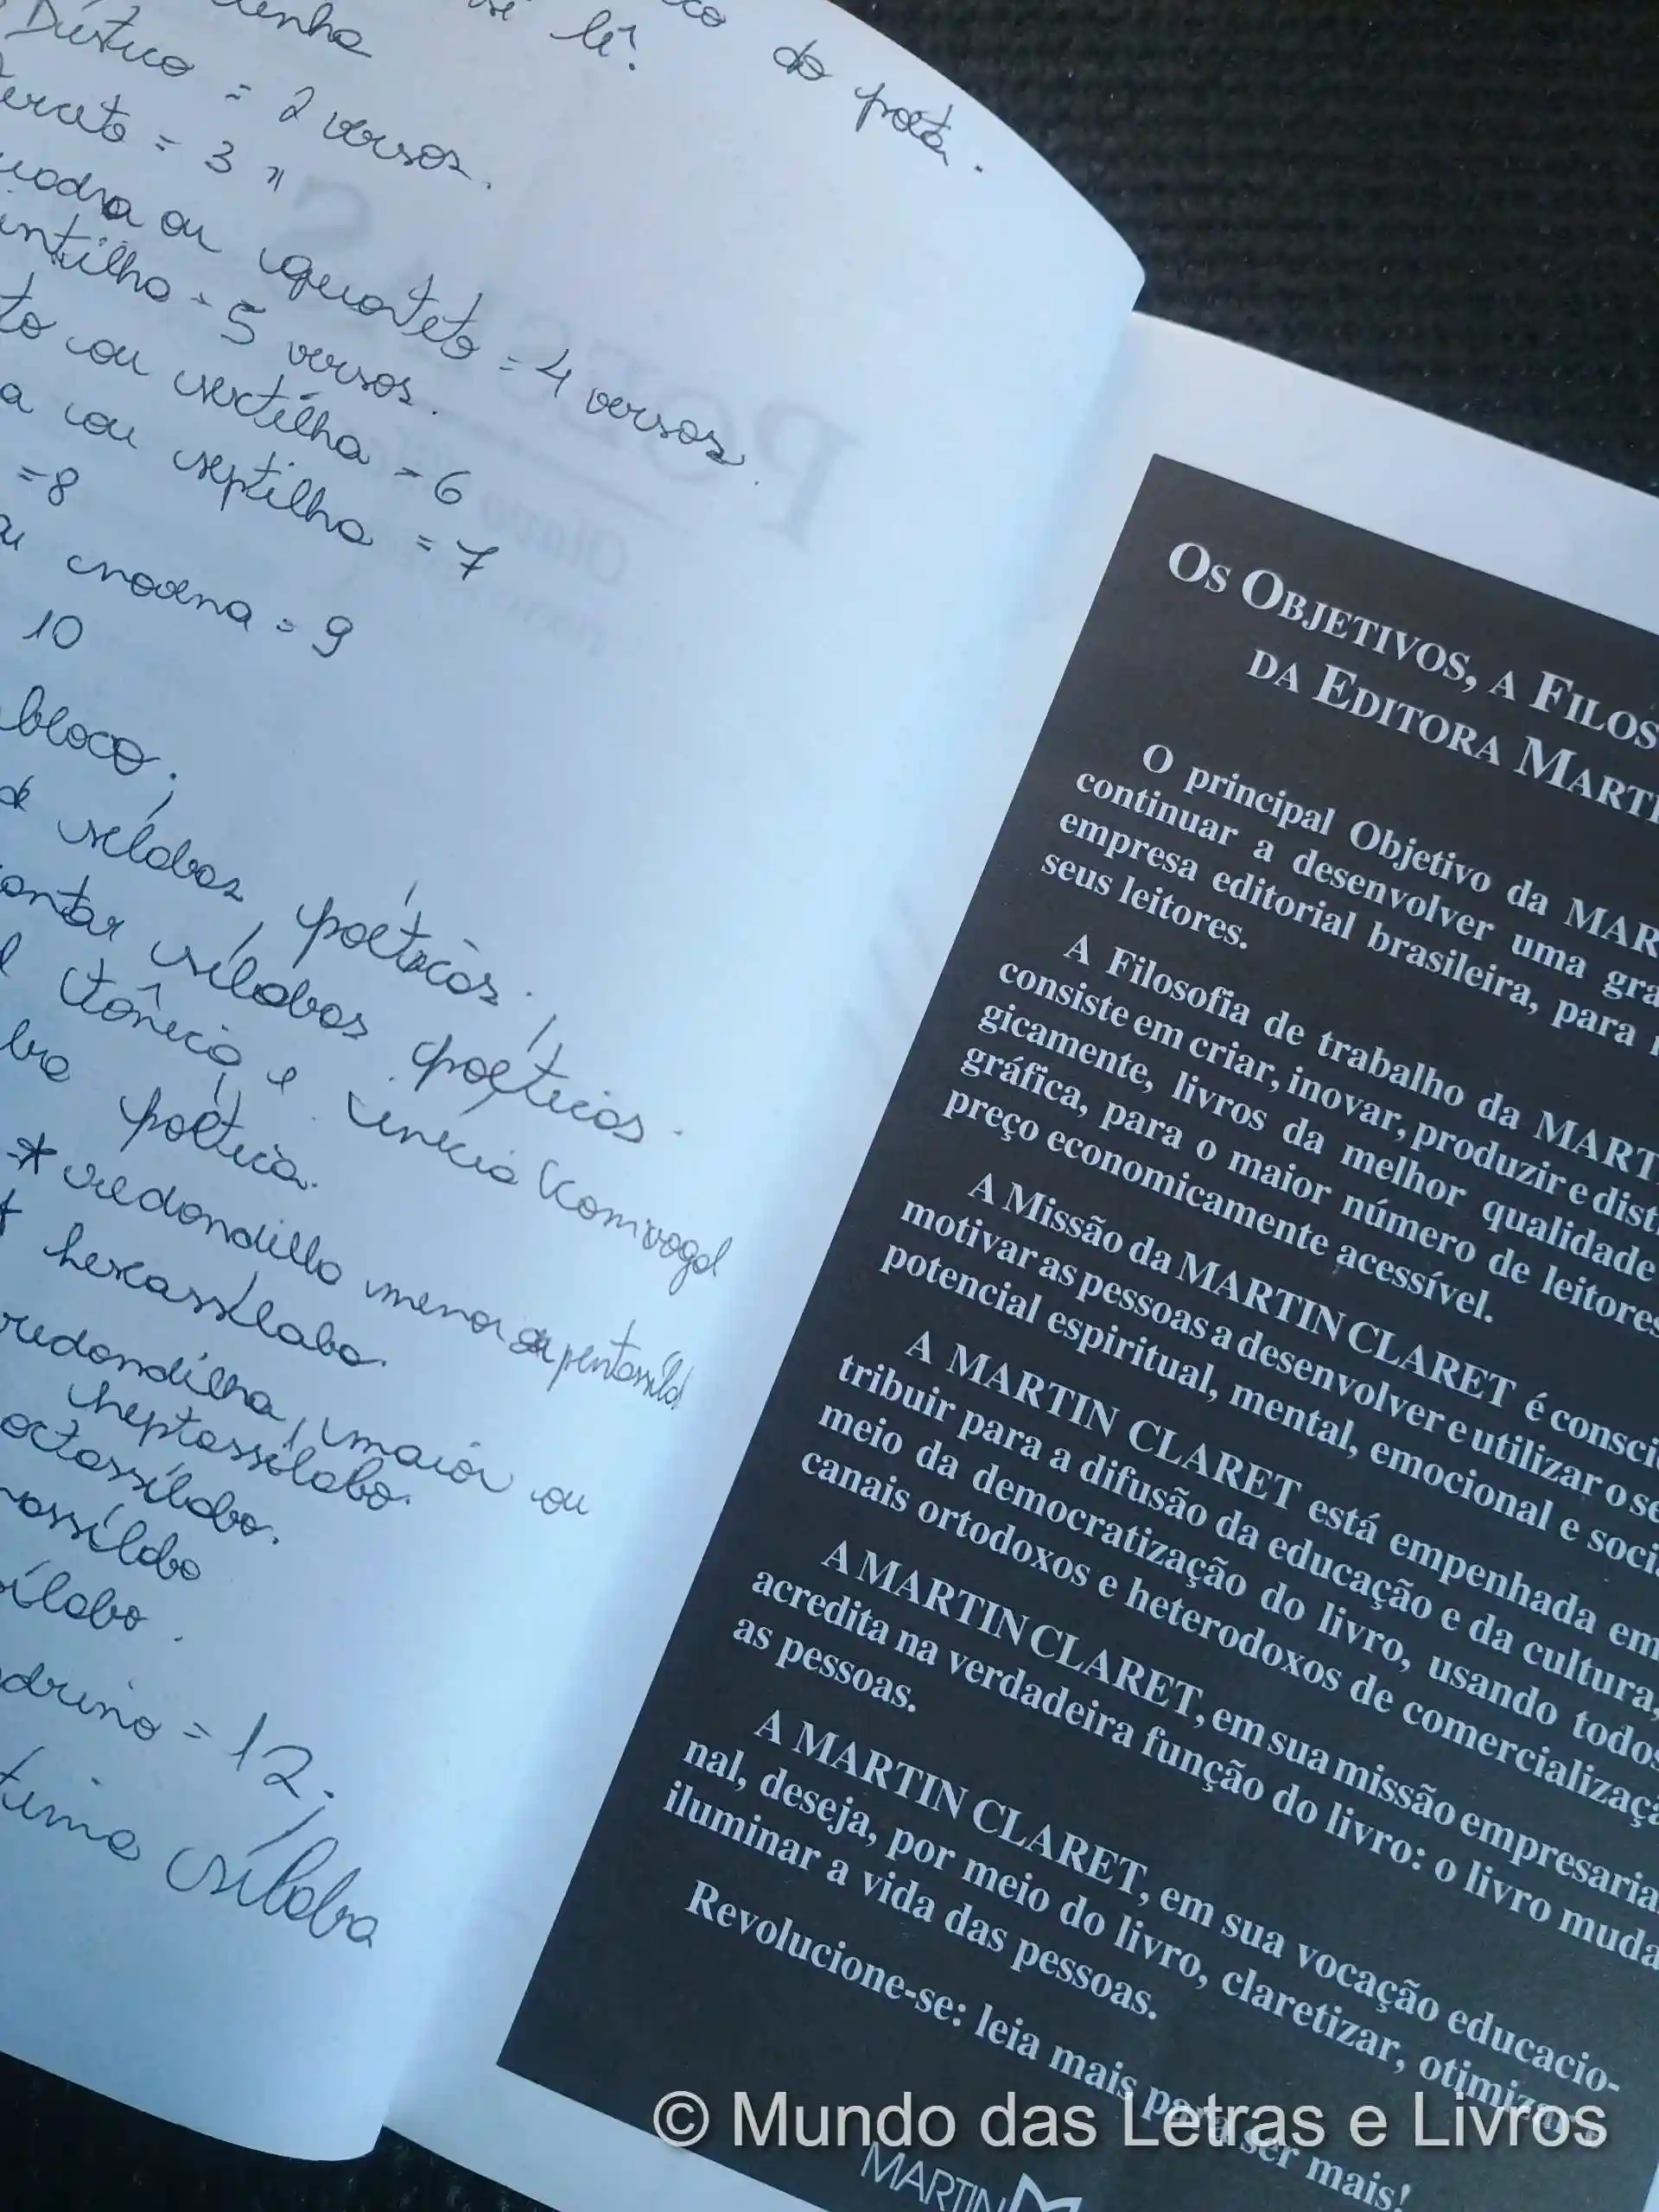 do poeta.
lê?
Dístico = 2 versos.
erceto = 3 "
uadra ou quarteto = 4 versos.
intilha = 5 versos.
to ou sextilha = 6
a ou septilha = 7
= 8
ou novena = 9
10
bloco.
de sílabas poéticas.
ontar sílabas poéticas.
l tônica e inicia (com vogal
ba poética.
* redondilla menor ou pentassílal
* hexassílabo.
redondilha maior ou
heptassílabo.
octossílabo.
nassílabo
sílabo.
ndrino = 12.
tima sílaba
POESIAS
OS OBJETIVOS, A FILOS
DA EDITORA MARTI
O principal Objetivo da MAR
continuar a desenvolver uma gra
empresa editorial brasileira, para
seus leitores.
A Filosofia de trabalho da MART
consiste em criar, inovar, produzir e dist
gicamente, livros da melhor qualidade
gráfica, para o maior número de leitores
preço economicamente acessível.
A Missão da MARTIN CLARET é consci
motivar as pessoas a desenvolver e utilizar o se
potencial espiritual, mental, emocional e soci
A MARTIN CLARET está empenhada em
tribuir para a difusão da educação e da cultura,
meio da democratização do livro, usando todos
canais ortodoxos e heterodoxos de comercializaç
A MARTIN CLARET, em sua missão empresaria
acredita na verdadeira função do livro: o livro muda
as pessoas.
A MARTIN CLARET, em sua vocação educacio-
nal, deseja, por meio do livro, claretizar, otimizar e
iluminar a vida das pessoas.
Revolucione-se: leia mais para ser mais!
MARTIN
© Mundo das Letras e Livros